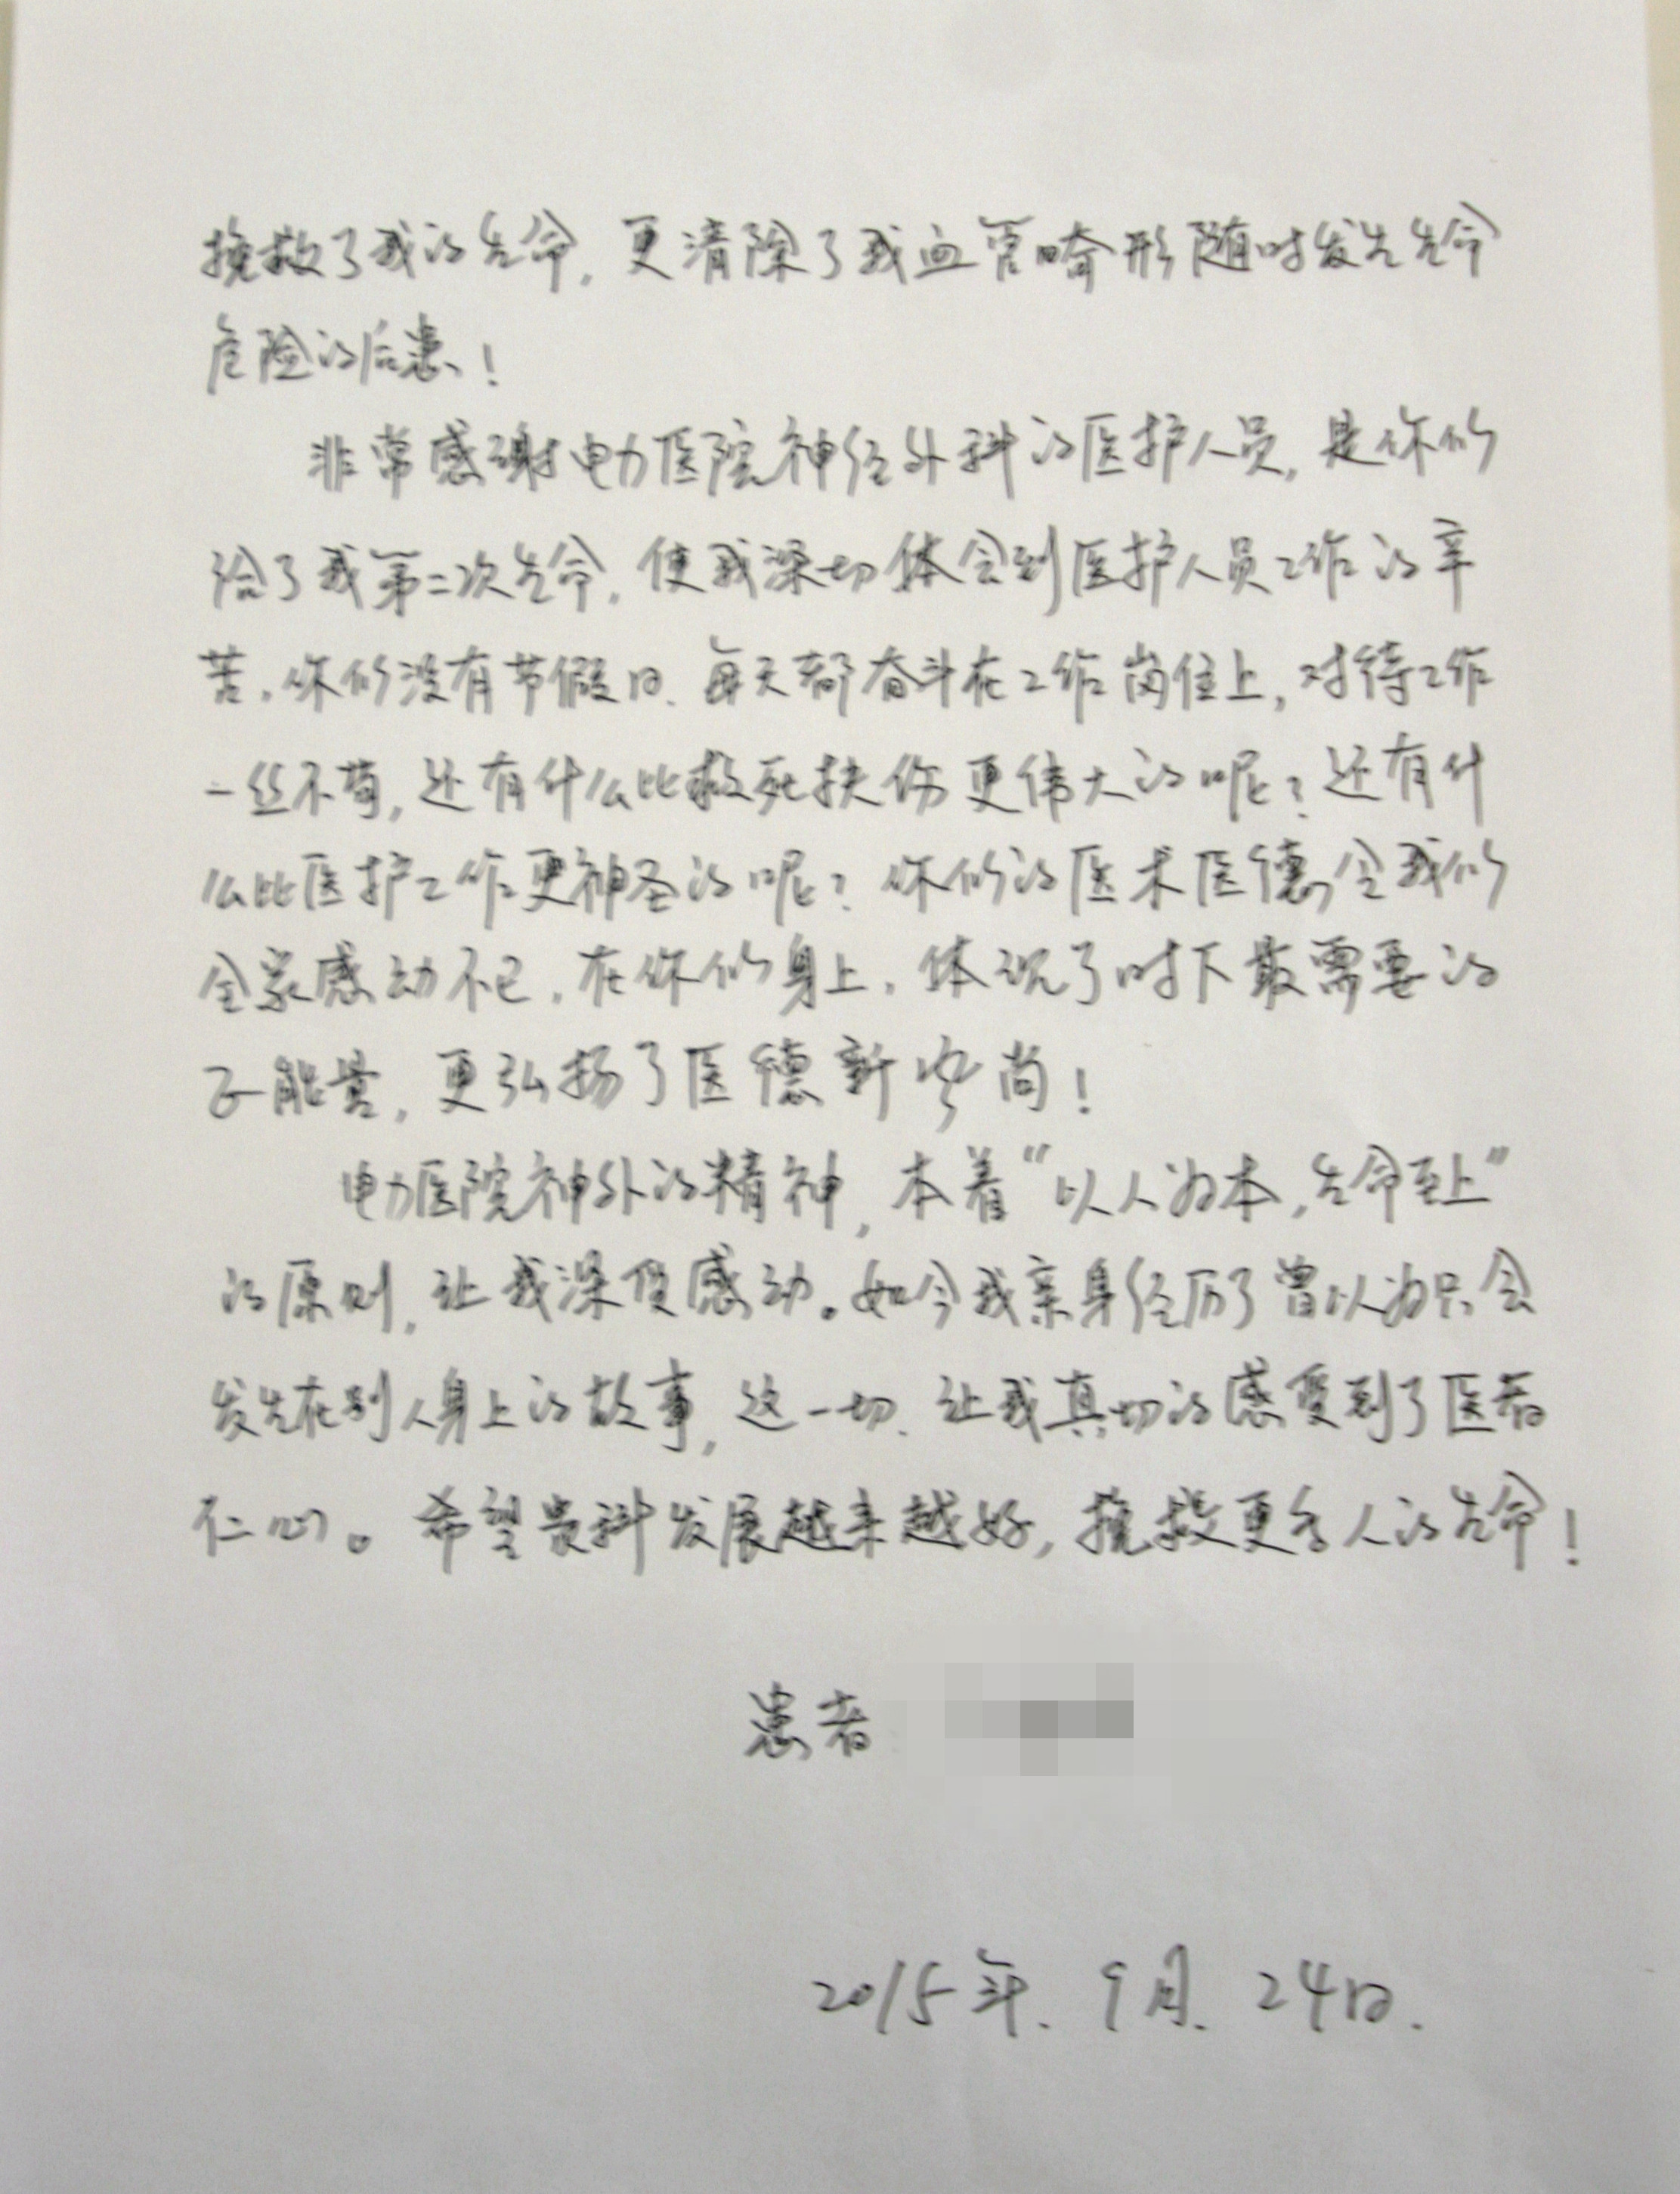 挽救了我的生命，更清除了我血管畸形随时发生生命
危险的后患！
非常感谢电力医院神经外科的医护人员，是你们
给了我第二次生命，使我深切体会到医护人员工作的辛
苦，你们没有节假日，每天都奋斗在工作岗位上，对待工作
一丝不苟，还有什么比救死扶伤更伟大的呢？还有什
么比医护工作更神圣的呢？你们的医术医德令我们
全家感动不已，在你们身上，体现了时下最需要的
正能量，更弘扬了医德新风尚！
电力医院神外的精神，本着“以人为本，生命至上”
的原则，让我深受感动。如今我亲身经历了曾以为只会
发生在别人身上的故事，这一切，让我真切的感受到了医者
仁心。希望贵科发展越来越好，挽救更多人的生命！
患者
2015年.9月.24日.